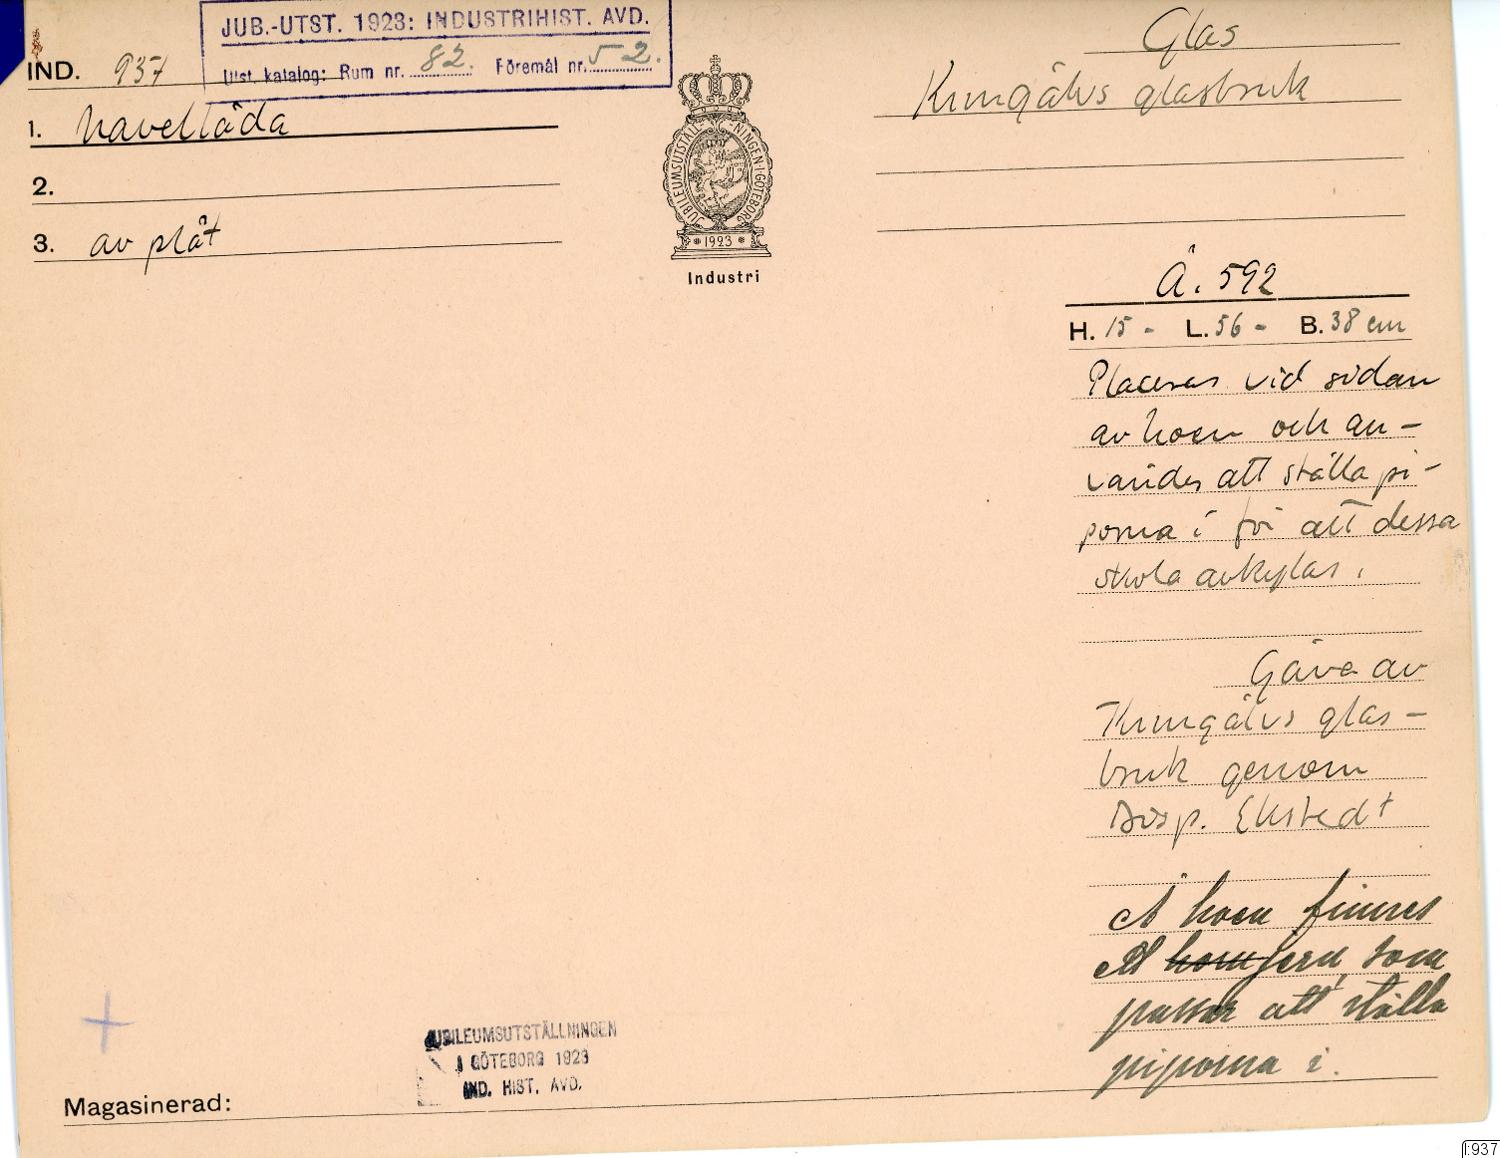 JUB.-UTST. 1923: INDUSTRIHIST. AVD.
Utst. katalog: Rum nr. 82. Föremål nr. 52.
IND. 937
1. Naveltåda
2.
3. av plåt
JUBILEUMSUTSTÄLL-NINGEN·I·GÖTEBORG
1923
Industri
Glas
Kungälvs glasbruk
Å. 592
H. 15 - L. 56 - B. 38 cm
Placeras vid sidan
av hoen och an-
vändes att ställa pi-
porna i för att dessa
skola avkylas.
Gåva av
Kungälvs glas-
bruk genom
Disp. Ekstedt
Å hoen finnes
ett jern, som
passar att ställa
piporna i.
JUBILEUMSUTSTÄLLNINGEN
I GÖTEBORG 1923
IND. HIST. AVD.
Magasinerad:
I:937